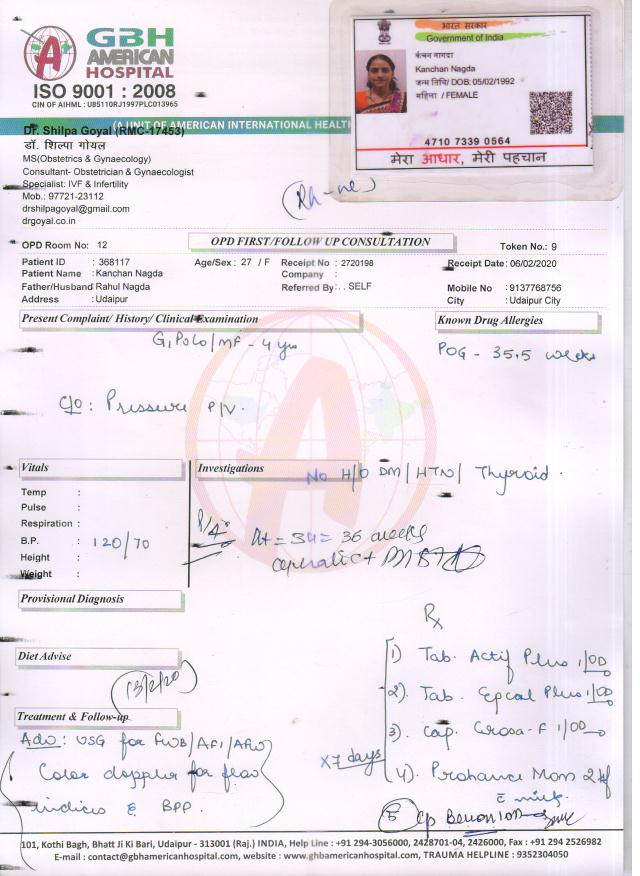 GBH
AMERICAN
HOSPITAL
ISO 9001 : 2008
CIN OF AIHML : U85110RJ1997PLC013965
(A UNIT OF AMERICAN INTERNATIONAL HEALTH
भारत सरकार
Government of India
कंचन नागदा
Kanchan Nagda
जन्म तिथि/ DOB: 05/02/1992
महिला / FEMALE
4710 7339 0564
मेरा आधार, मेरी पहचान
Dr. Shilpa Goyal (RMC-17453)
डॉ. शिल्पा गोयल
MS(Obstetrics & Gynaecology)
Consultant- Obstetrician & Gynaecologist
Specialist: IVF & Infertility
Mob.: 97721-23112
drshilpagoyal@gmail.com
drgoyal.co.in
(Rh-ve)
OPD Room No: 12
OPD FIRST/FOLLOW UP CONSULTATION
Token No.: 9
Patient ID : 368117 Age/Sex : 27 / F Receipt No : 2720198 Receipt Date: 06/02/2020
Patient Name : Kanchan Nagda Company :
Father/Husband Rahul Nagda Referred By : . . SELF Mobile No : 9137768756
Address : Udaipur City : Udaipur City
Present Complaint/ History/ Clinical Examination
Known Drug Allergies
G1P0L0/MF - 4 yrs
POG - 35.5 weeks
c/o : Pressure P/V.
Vitals
Investigations
No H/O DM/HTN/ Thyroid.
Temp :
Pulse :
Respiration :
B.P. : 120/70
Height :
Weight :
P/A
Ut = 34 = 36 weeks
cephalic +
Provisional Diagnosis
Rx
Diet Advise
13/2/20
1) Tab. Actif Plus 1/OD
2) Tab. Epcal Plus 1/OD
3. Cap. Grosa-F 1/OD
Treatment & Follow-up
Adv : USG for FWB/AFI/
Color doppler for flow
indices & BPP.
x7 days
4). Prohance Mom 2tsf
c milk.
5
101, Kothi Bagh, Bhatt Ji Ki Bari, Udaipur - 313001 (Raj.) INDIA, Help Line : +91 294-3056000, 2428701-04, 2426000, Fax : +91 294 2526982
E-mail : contact@gbhamericanhospital.com, website : www.ghbamericanhospital.com, TRAUMA HELPLINE : 9352304050